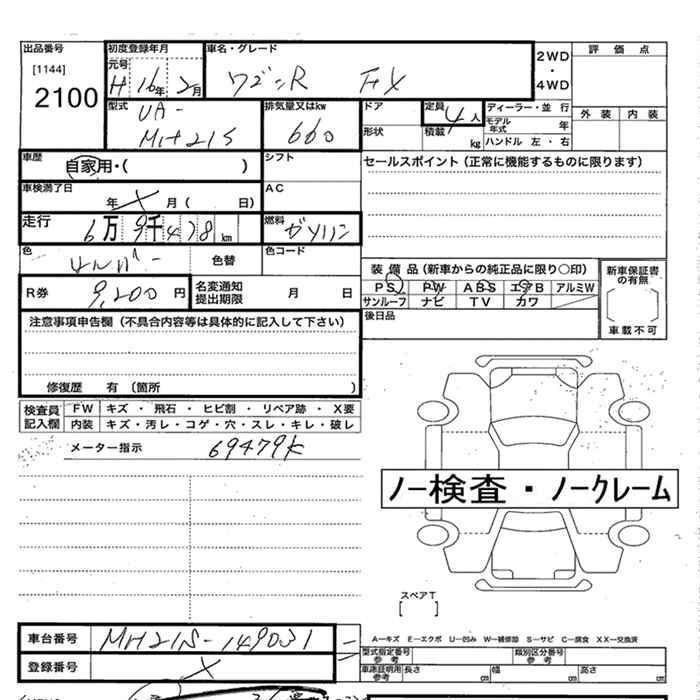 出品番号
[1144]
2100
初度登録年月
元号
H 16年 2月
車名・グレード
ワゴンR FX
2WD
・
4WD
評価点
外装 内装
型式
UA-
MH21S
排気量又はkw
660
ドア
形状
定員
4人
積載
kg
ディーラー・並行
モデル年式 年
ハンドル 左・右
車歴
自家用・( )
シフト
セールスポイント(正常に機能するものに限ります)
車検満了日
年 月( 日)
AC
走行
6万9千478km
燃料
ガソリン
色
シルバー
色替
色コード
R券
9,200円
名変通知
提出期限
月 日
装備品(新車からの純正品に限り○印)
PS PW ABS エアB アルミW
サンルーフ ナビ TV カワ
後日品
新車保証書
の有無
車載不可
注意事項申告欄(不具合内容等は具体的に記入して下さい)
修復歴 有(箇所 )
検査員
記入欄
FW キズ・飛石・ヒビ割・リペア跡・X要
内装 キズ・汚レ・コゲ・穴・スレ・キレ・破レ
メーター指示 69479K
ノー検査・ノークレーム
スペアT
[ ]
車台番号 MH21S-149031
登録番号
A－キズ E－エクボ U－凹み W－補修跡 S－サビ C－腐食 XX－交換済
型式指定番号
参考
類別区分番号
参考
車庫証明用
参考
長さ cm 幅 cm 高さ cm